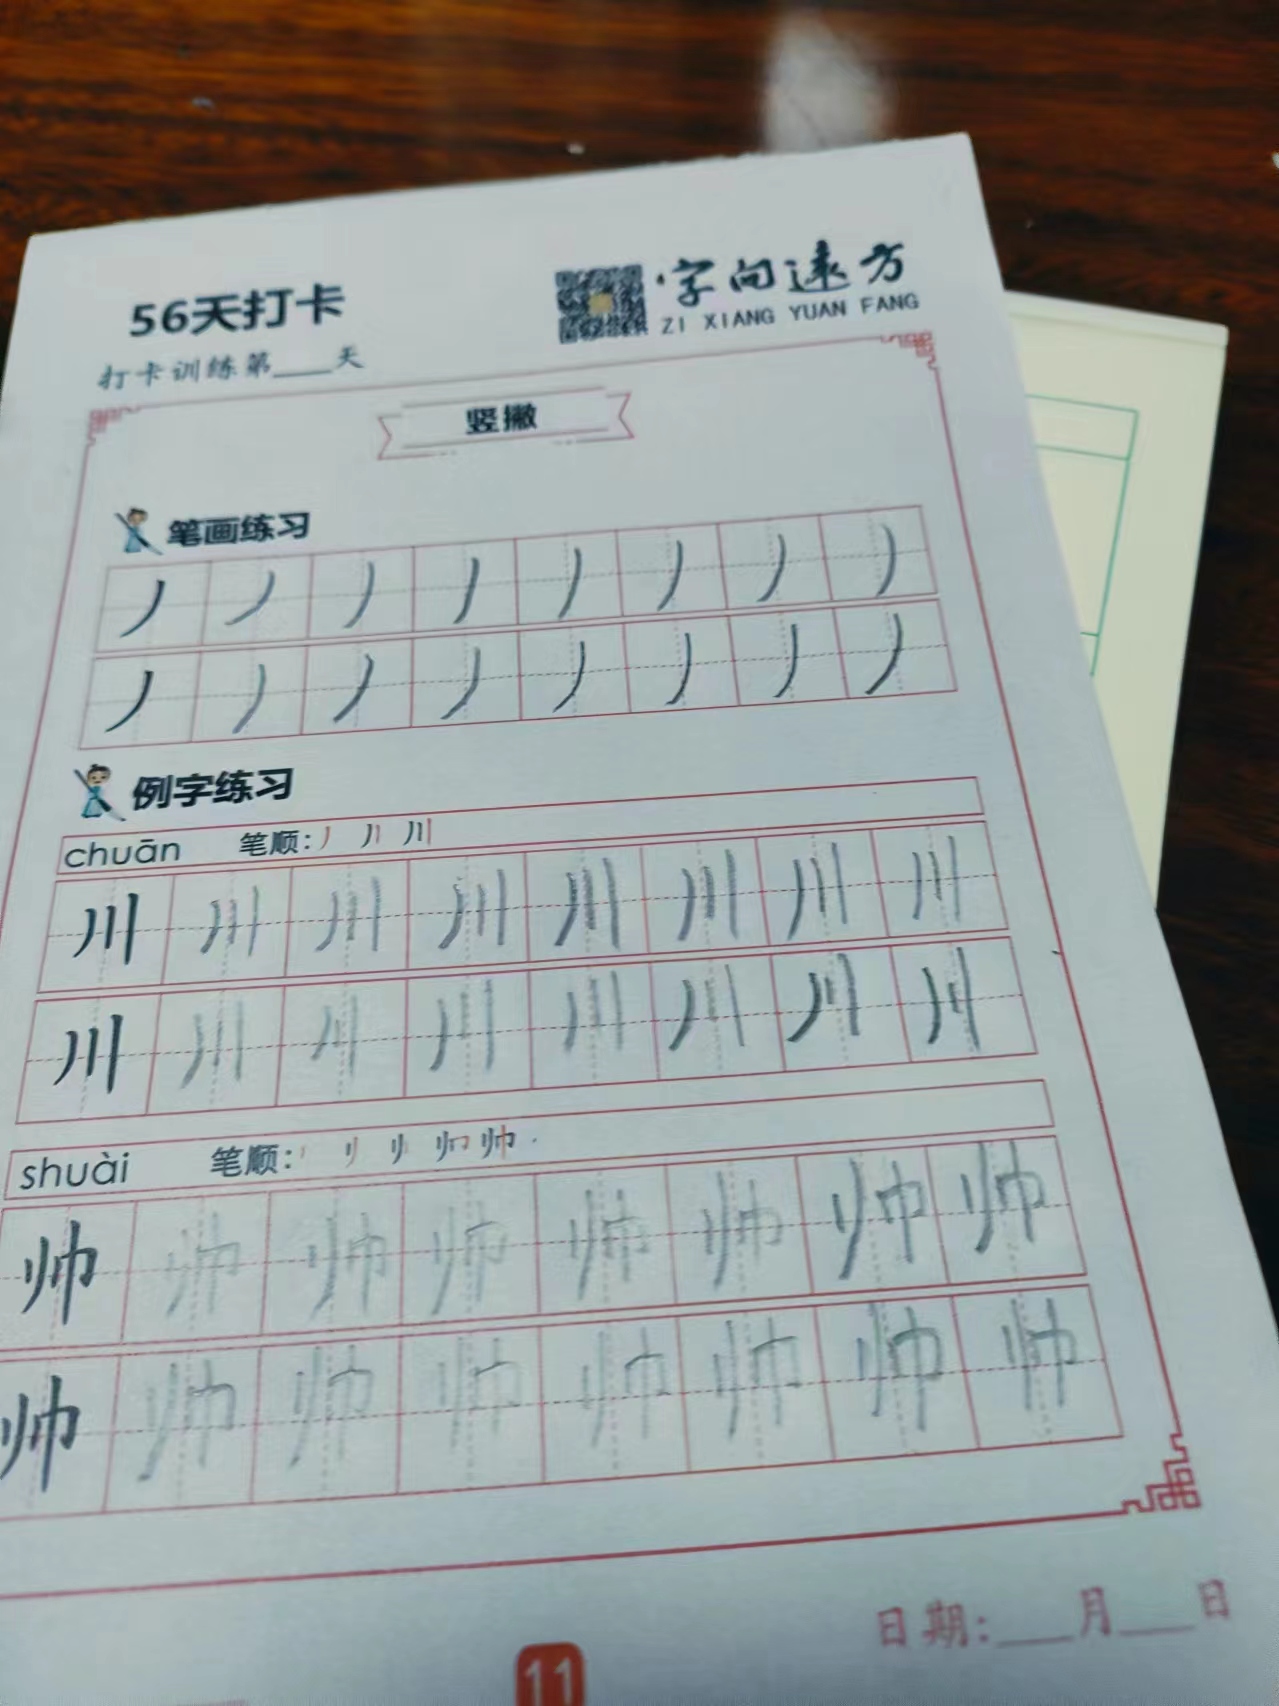 56天打卡
字向远方
ZI XIANG YUAN FANG
打卡训练第____天
竖撇
笔画练习
丿 丿 丿 丿 丿 丿 丿 丿
丿 丿 丿 丿 丿 丿 丿 丿
例字练习
chuān 笔顺: 丿 川
川 川 川 川 川 川 川 川
川 川 川 川 川 川 川 川
shuài 笔顺: 帅
帅 帅 帅 帅 帅 帅 帅 帅
帅 帅 帅 帅 帅 帅 帅 帅
日期:____月____日
11